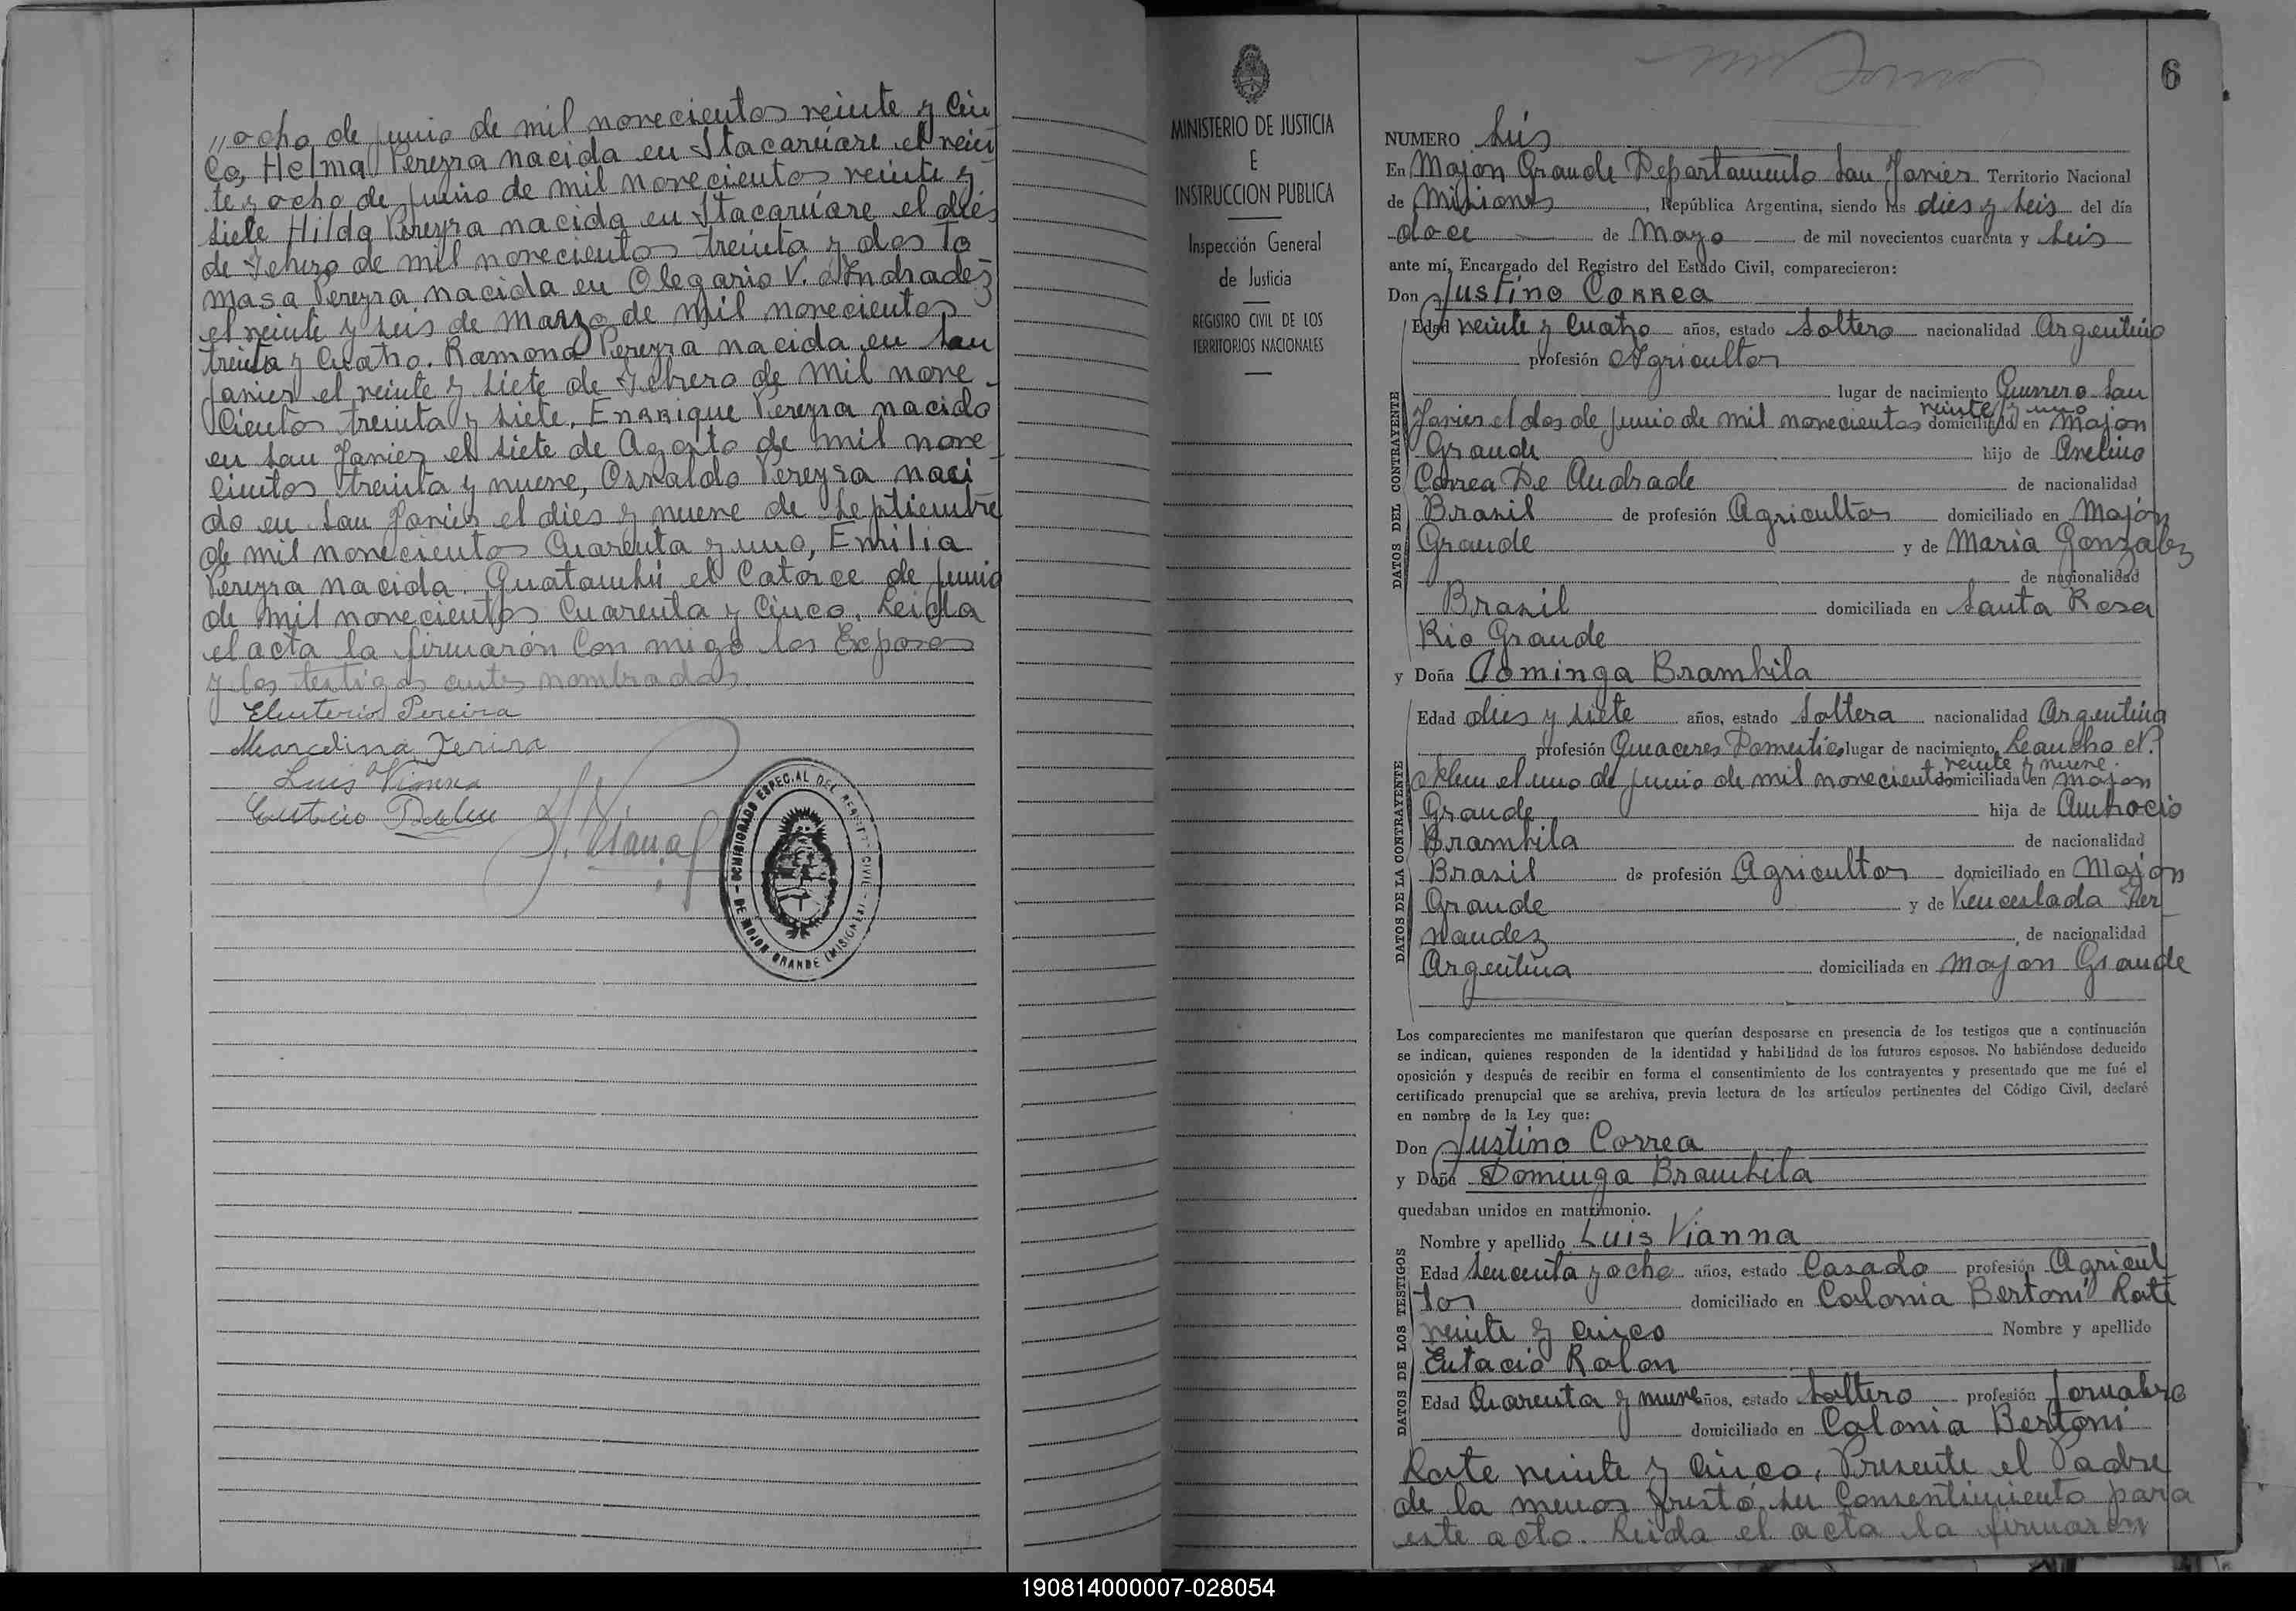 ,, ocho de junio de mil novecientos veinte y Cin
Co, Helma Pereyra nacida en Itacaruare el vein
te y ocho de junio de mil novecientos veinte y
siete Hilda Pereyra nacida en Itacaruare el dies
de Febrero de mil novecientos treinta y dos To
masa Pereyra nacida en Olegario V. Andradez
el veinte y seis de Marzo de mil novecientos
treinta y Cuatro. Ramona Pereyra nacida en San
Javier el veinte y siete de Febrero de mil nove
Cientos treinta y siete, Enrrique Pereyra nacido
en San Javier el siete de Agosto de mil nove
cientos treinta y nueve, Osvaldo Pereyra naci
do en San Javier el dies y nueve de Septiembre
de mil novecientos Cuarenta y uno, Emilia
Pereyra nacida Guatambú el Catorce de junio
de mil novecientos Cuarenta y Cinco. Leida
el acta la firmarón Con migo los Exposos
y los testigos antes nombrados.
Eleuterio Pereira
Marcelina
Luis Vianna
J. Viana
ESPECIAL DEL REGISTRO CIVIL - DE MOJON GRANDE (MISIONES)
MINISTERIO DE JUSTICIA
E
INSTRUCCION PUBLICA
Inspección General
de Justicia
REGISTRO CIVIL DE LOS
TERRITORIOS NACIONALES
6
NUMERO Seis
En Mojon Grande Departamento San Javier Territorio Nacional
de Misiones, República Argentina, siendo las dies y seis del día
doce de Mayo de mil novecientos cuarenta y seis
ante mí, Encargado del Registro del Estado Civil, comparecieron:
Don Justino Correa
DATOS DEL CONTRAYENTE
Edad veinte y Cuatro años, estado Soltero nacionalidad Argentino
profesión Agricultor
lugar de nacimiento Guerrero San
Javier el dos de junio de mil novecientos veinte y uno domiciliado en Mojon
Grande hijo de Avelino
Correa De Andrade de nacionalidad
Brasil de profesión Agricultor domiciliado en Mojón
Grande y de Maria Gonzalez
de nacionalidad
Brasil domiciliada en Santa Rosa
Rio Grande
y Doña Dominga Brambila
DATOS DE LA CONTRAYENTE
Edad dies y siete años, estado Soltera nacionalidad Argentina
profesión Queaceres Domestico lugar de nacimiento Leandro N.
Alem el uno de junio de mil novecientos veinte y nueve. domiciliada en Mojon
Grande hija de Ambrocio
Brambila de nacionalidad
Brasil de profesión Agricultor domiciliado en Mojon
Grande y de Venceslada Fer
nandez, de nacionalidad
Argentina domiciliada en Mojon Grande
Los comparecientes me manifestaron que querían desposarse en presencia de los testigos que a continuación
se indican, quienes responden de la identidad y habilidad de los futuros esposos. No habiéndose deducido
oposición y después de recibir en forma el consentimiento de los contrayentes y presentado que me fué el
certificado prenupcial que se archiva, previa lectura de los artículos pertinentes del Código Civil, declaré
en nombre de la Ley que:
Don Justino Correa
y Doña Dominga Brambila
quedaban unidos en matrimonio.
DATOS DE LOS TESTIGOS
Nombre y apellido Luis Vianna
Edad y ocho años, estado Casado profesión Agricul
tor domiciliado en Colonia Bertoni Lote
veinte y cinco Nombre y apellido
Eutacio Rolon
Edad Cuarenta y nueve años, estado Soltero profesión Jornalero
domiciliado en Colonia Bertoni
Lote veinte y Cinco. Presente el Padre
de la menor prestó su Consentimiento para
este acto. Leida el acta la firmarón
190814000007-028054